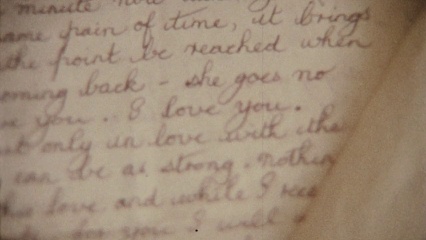 minute
same pain of time, it brings
the point be reached when
coming back - she goes no
you. I love you.
only in love with the
can be as strong. nothing
love and while I
you I will